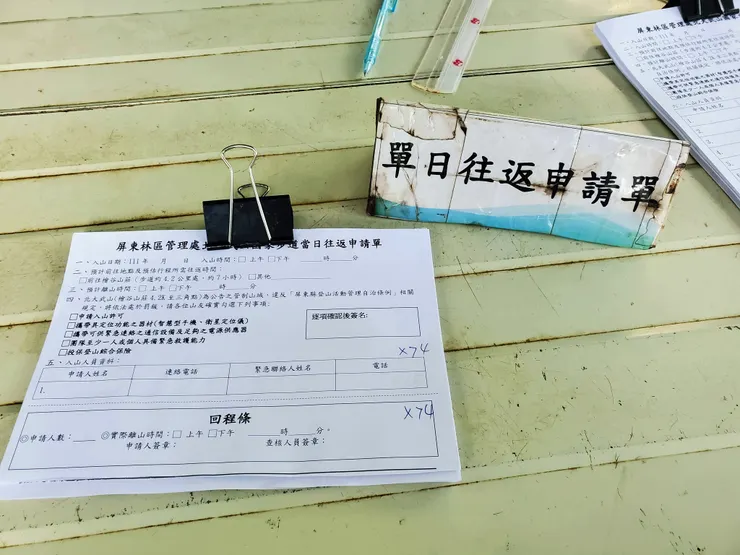 單日往返申請單
屏東林區管理處 國家步道當日往返申請單
一、入山日期:111年 月 日 入山時間:□上午 □下午 時 分
二、預計前往地點及預估行程所需往返時間:
□前往檜谷山莊(步道約4.2公里處,約7小時) □其他
三、預計離山時間:□上午 □下午 時 分
四、北大武山(檜谷山莊4.2K至三角點)為公告之管制山域,違反「屏東縣登山活動管理自治條例」相關
規定,將依法處於罰鍰,請各位山友確實勾選下列事項:
□申請入山許可
□攜帶具定位功能之器材(智慧型手機、衛星定位儀)
□攜帶可供緊急連絡之通信設備及足夠之電源供應器
□團隊至少一人或個人具備緊急救護能力
□投保登山綜合保險
逐項確認後簽名:
五、入山人員資料:
x74
申請人姓名 連絡電話 緊急聯絡人姓名 電話
1.
回程條
x74
◎申請人數: ◎實際離山時間:□上午 □下午 時 分。
申請人簽章: 查核人員簽章:
屏東林區管理處